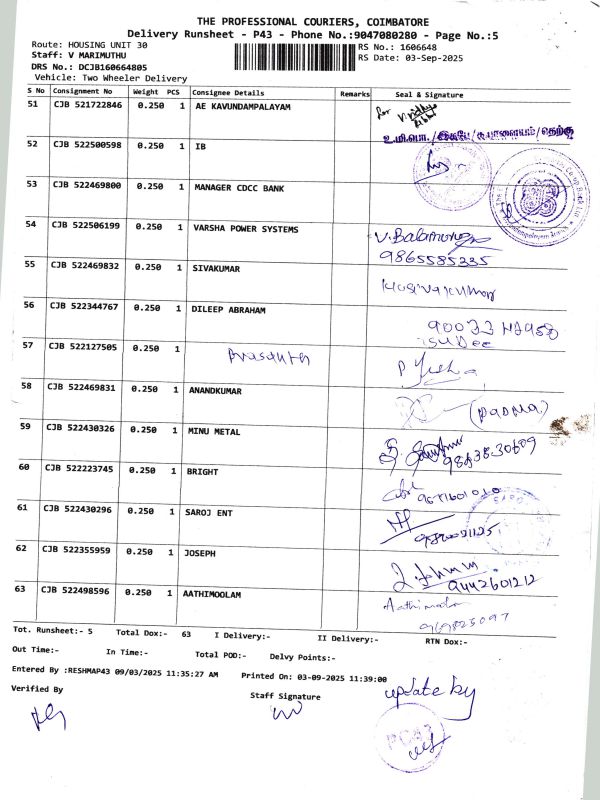 THE PROFESSIONAL COURIERS, COIMBATORE
Delivery Runsheet - P43 - Phone No.:9047080280 - Page No.:5
Route: HOUSING UNIT 30
RS No.: 1606648
Staff: V MARIMUTHU
RS Date: 03-Sep-2025
DRS No.: DCJB160664805
Vehicle: Two Wheeler Delivery
S No Consignment No Weight PCS Consignee Details Remarks Seal & Signature
51 CJB 521722846 0.250 1 AE KAVUNDAMPALAYAM
52 CJB 522500598 0.250 1 IB
53 CJB 522469800 0.250 1 MANAGER CDCC BANK
54 CJB 522506199 0.250 1 VARSHA POWER SYSTEMS
9865585335
55 CJB 522469832 0.250 1 SIVAKUMAR
56 CJB 522344767 0.250 1 DILEEP ABRAHAM
57 CJB 522127505 0.250 1
58 CJB 522469831 0.250 1 ANANDKUMAR (PADMA)
59 CJB 522430326 0.250 1 MINU METAL
60 CJB 522223745 0.250 1 BRIGHT
61 CJB 522430296 0.250 1 SAROJ ENT
62 CJB 522355959 0.250 1 JOSEPH
9442601212
63 CJB 522498596 0.250 1 AATHIMOOLAM
Tot. Runsheet:- 5 Total Dox:- 63 I Delivery:- II Delivery:- RTN Dox:-
Out Time:- In Time:- Total POD:- Delvy Points:-
Entered By :RESHMAP43 09/03/2025 11:35:27 AM Printed On: 03-09-2025 11:39:00
Verified By Staff Signature update by